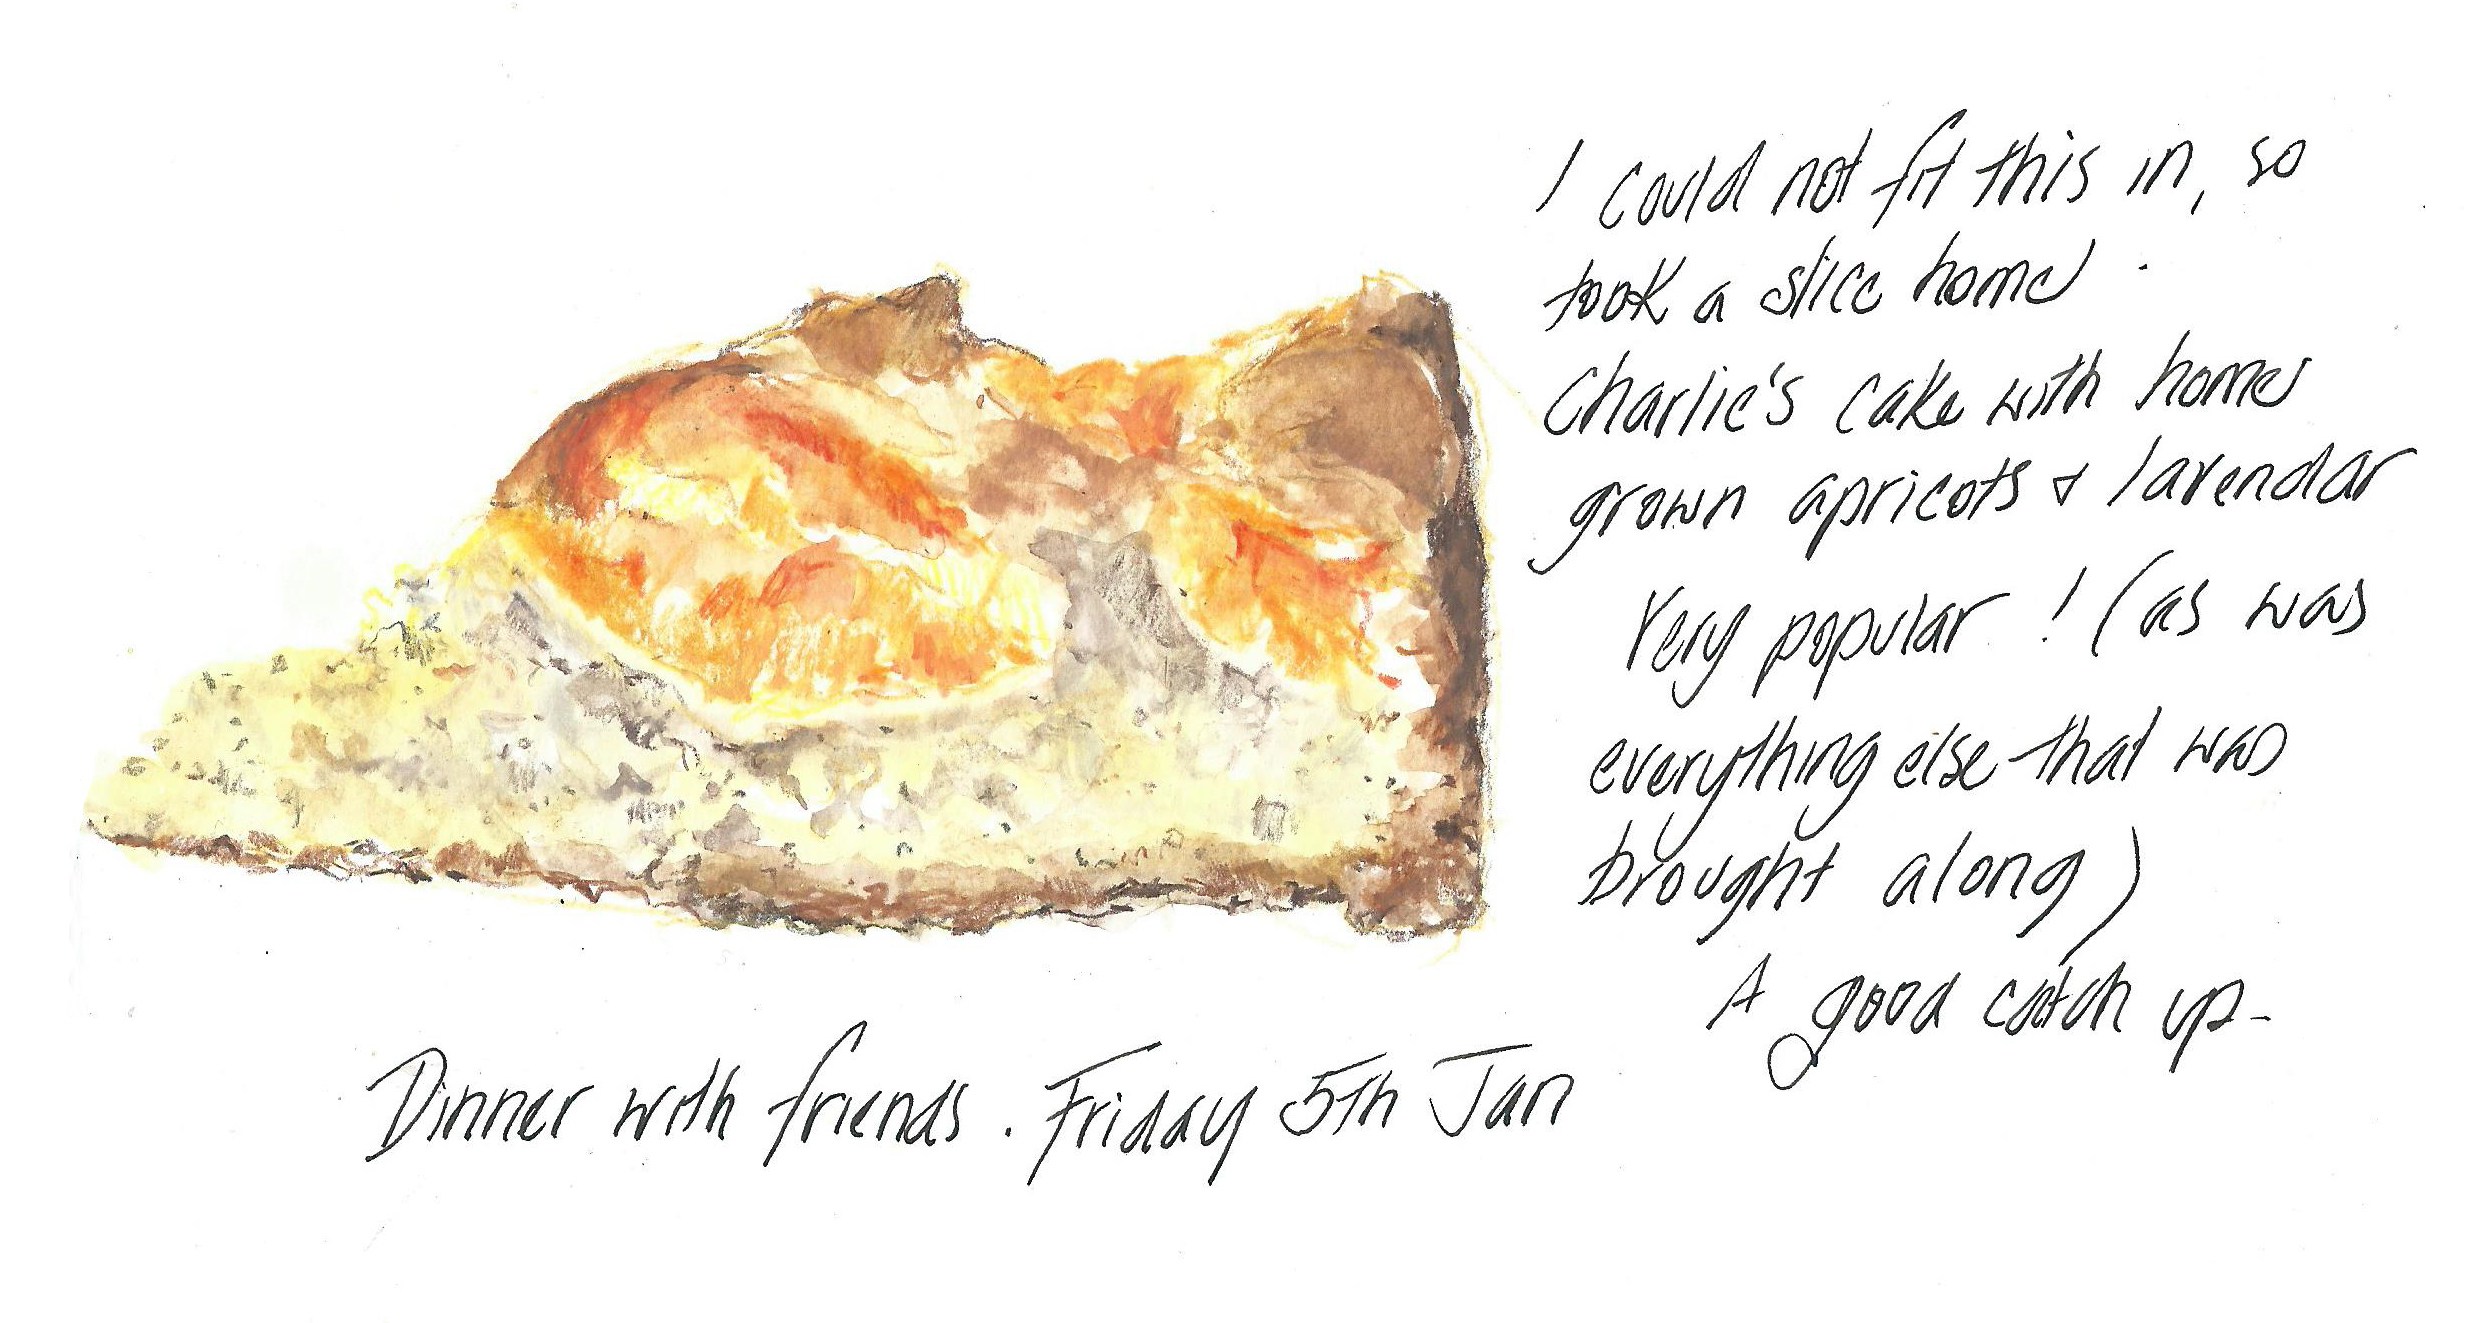 I could not fit this in, so
took a slice home.
Charlie's cake with home
grown apricots & lavendar
Very popular! (as was
everything else that was
brought along)
A good catch up-
Dinner with friends. Friday 5th Jan